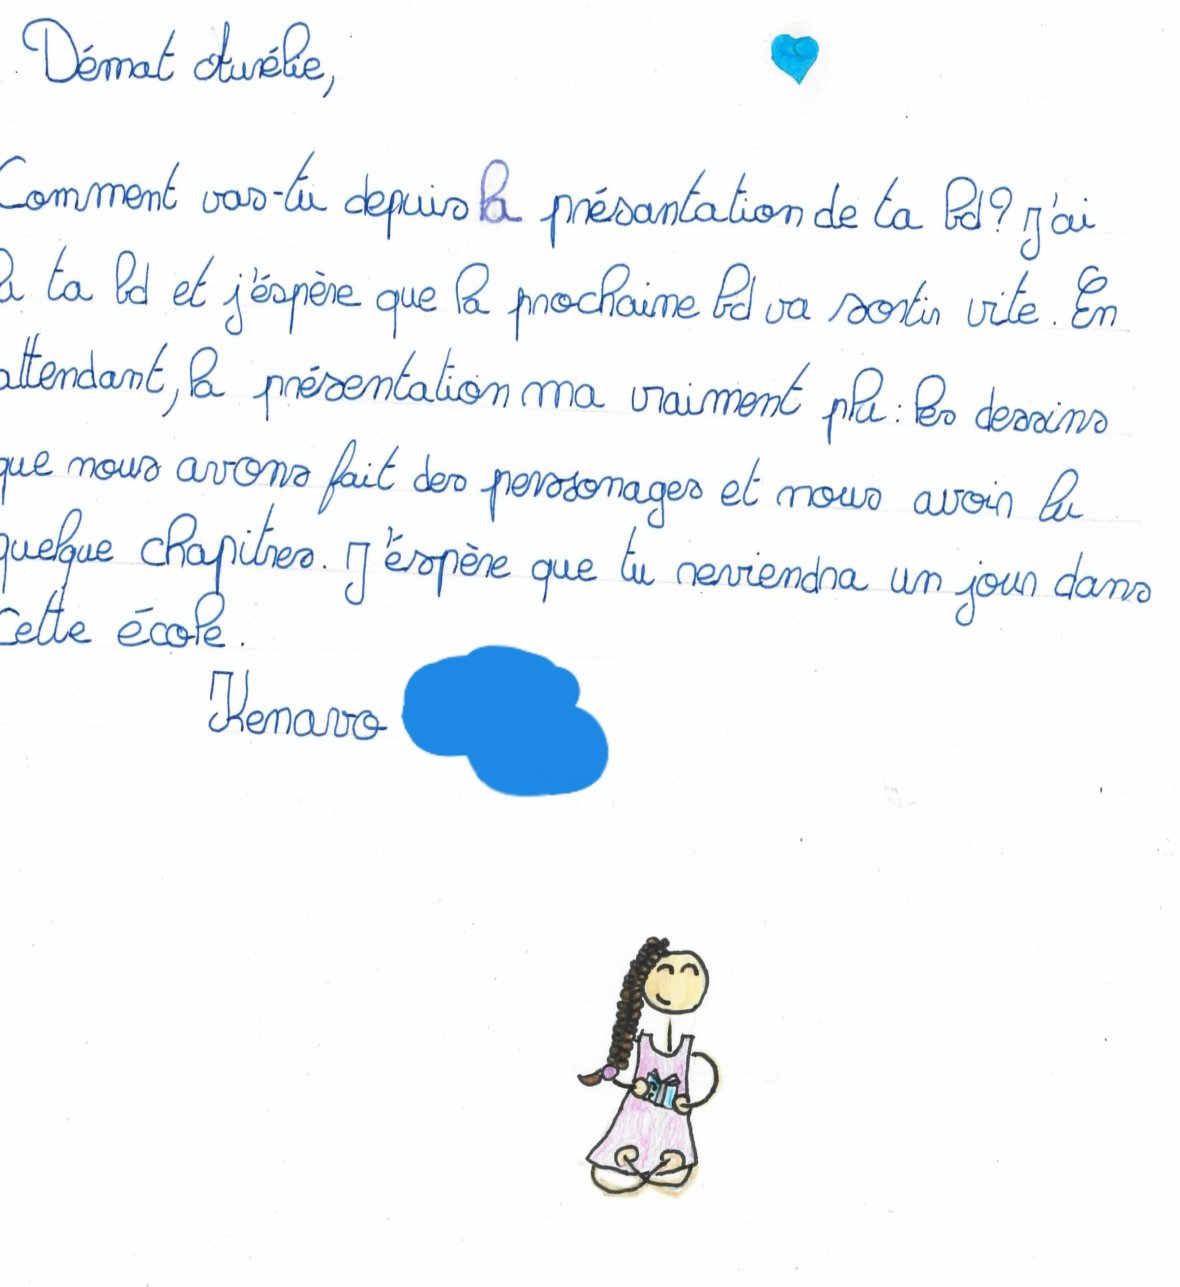 Démat Aurélie,
Comment vas-tu depuis la présantation de ta bd? j'ai
lu ta bd et j'éspère que la prochaine bd va sortir vite. En
attendant, la présentation ma vraiment plu: les dessins
que nous avons fait des perssonages et nous avoir lu
quelque chapitres. J'éspère que tu reviendra un jour dans
cette école.
Kenavo